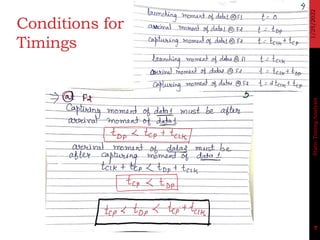 Conditions for
Timings
4
launching moment of data1 @F1 t = 0
arrival moment of data1 @F2 t = tDP
capturing moment of data1 @F2 t = tCLK + tCP
launching moment of data2 @F1 t = tCLK
arrival moment of data2 @F2 t = tCLK + tDP
capturing moment of data2 @F2 t = 2tCLK + tCP
5
⇒ @ F2
Capturing moment of data1 must be after
arrival moment of data1
tDP < tCP + tCLK
arrival moment of data2 must be
after capturing moment of data 1
tCLK + tCP < tDP + tCLK
tCP < tDP
tCP < tDP < tCP + tCLK
Static Timing Analysis